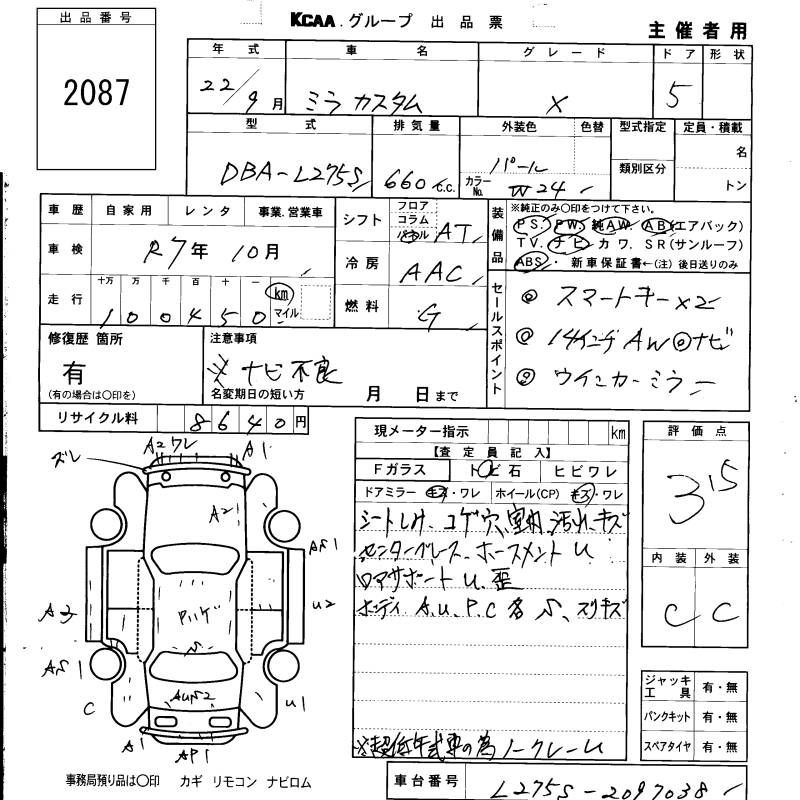 出品番号
2087
KCAA グループ 出品票
主催者用
年式 車名 グレード ドア 形状
22/9月 ミラ カスタム X 5
型式 排気量 外装色 色替 型式指定 定員・積載
DBA-L275S 660 c.c. パール カラーNo. W24 類別区分 名 トン
車歴 自家用 レンタ 事業.営業車
シフト フロア コラム パネル AT
車検 R7年 10月
冷房 AAC
走行 十万 万 千 百 十 一
100450 km マイル
燃料 G
装備品 ※純正のみ〇印をつけて下さい.
PS. PW. 純AW. AB(エアバック)
TV. ナビ カワ. SR(サンルーフ)
ABS. ・ 新車保証書←(注) 後日送りのみ
セールスポイント
◎ スマートキー×2
◎ 14インチAW ◎ナビ
◎ ウインカーミラー
修復歴 箇所
有
(有の場合は〇印を)
注意事項
※ナビ不良
名変期日の短い方 月 日まで
リサイクル料 8640円
現メーター指示 km
【査定員記入】
Fガラス トビ石 ヒビワレ
ドアミラー キズ・ワレ ホイール(CP) キズ・ワレ
シートしみ、コゲ穴、室内汚れ、キズ
ボディ A.U.P.C 各
※超低年式車の為ノークレーム
評価点
3.5
内装 外装
C C
ジャッキ 工具 有・無
パンクキット 有・無
スペアタイヤ 有・無
ズレ
A2ワレ
A1
A2
AS1
A3
U2
Pハゲ
AS1
C
AUS2
U1
A1
AP1
事務局預り品は〇印 カギ リモコン ナビロム
車台番号 L275S-2097038